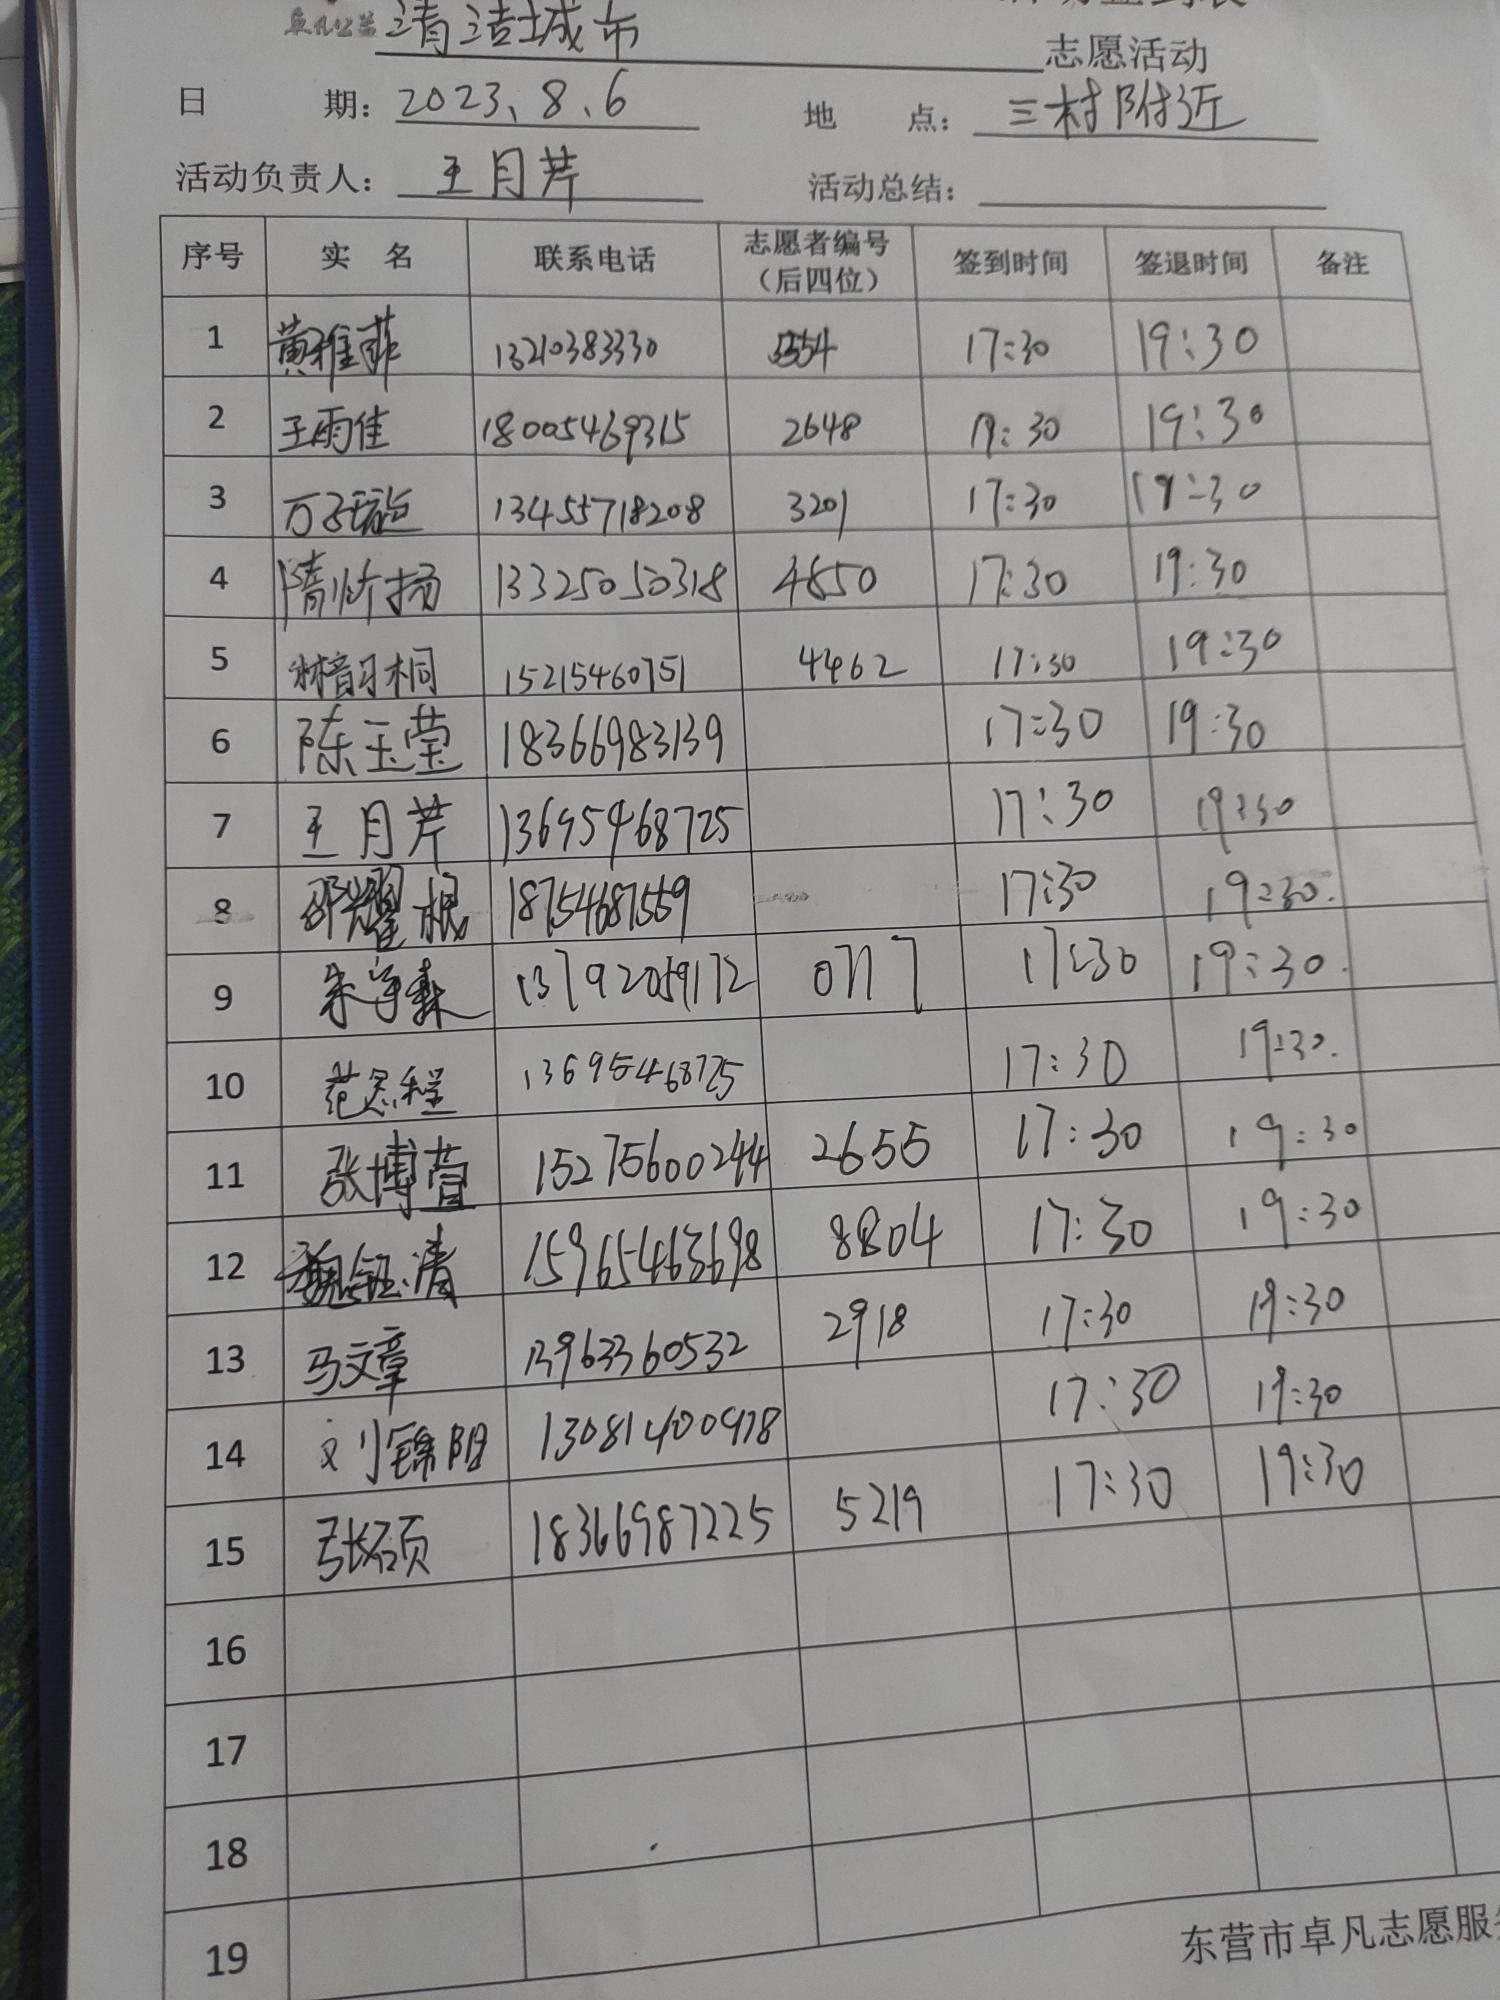 卓凡公益 清洁城市 志愿活动
日 期：2023、8、6 地 点：三村附近
活动负责人：王月芹 活动总结：
序号 实 名 联系电话 志愿者编号（后四位） 签到时间 签退时间 备注
1 黄雅菲 13210383330 17:30 19:30
2 王雨佳 18005469315 2648 19:30 19:30
3 万子 13455718208 3201 17:30 19:30
4 隋昕扬 13325050318 4850 17:30 19:30
5 桐 15215460751 4462 17:30 19:30
6 陈玉莹 18366983139 17:30 19:30
7 王月芹 13695468725 17:30 19:30
8 邵耀根 18754687559 17:30 19:30.
9 朱 森 13792059172 0777 17:30 19:30.
10 范思程 13695468725 17:30 19:30.
11 张博萱 15275600244 2655 17:30 19:30
12 魏钰清 15965463698 8804 17:30 19:30
13 马文章 13963360532 2918 17:30 19:30
14 刘锦阳 13081400978 17:30 19:30
15 张硕 18366987225 5219 17:30 19:30
16
17
18
19
东营市卓凡志愿服